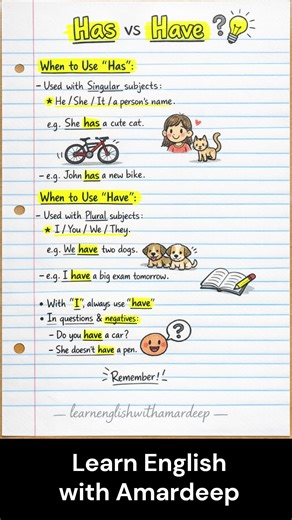 Has vs Have ?
When to Use "Has":
- Used with Singular subjects:
★ He / She / It / a person's name.
e.g. She has a cute cat.
- e.g. John has a new bike.
When to Use "Have":
- Used with Plural subjects:
★ I / You / We / They.
e.g. We have two dogs.
- e.g. I have a big exam tomorrow.
• With "I", always use "have"
• In questions & negatives:
- Do you have a car?
?
- She doesn't have a pen.
Remember!
— learnenglishwithamardeep —
Learn English
with Amardeep